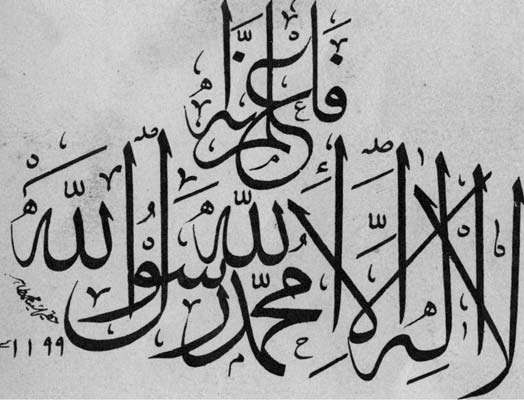 فَاعْلَمْ أَنَّهُ
لَا إِلٰهَ إِلَّا اللّٰهُ مُحَمَّدٌ رَسُولُ اللّٰهِ
١١٩٩